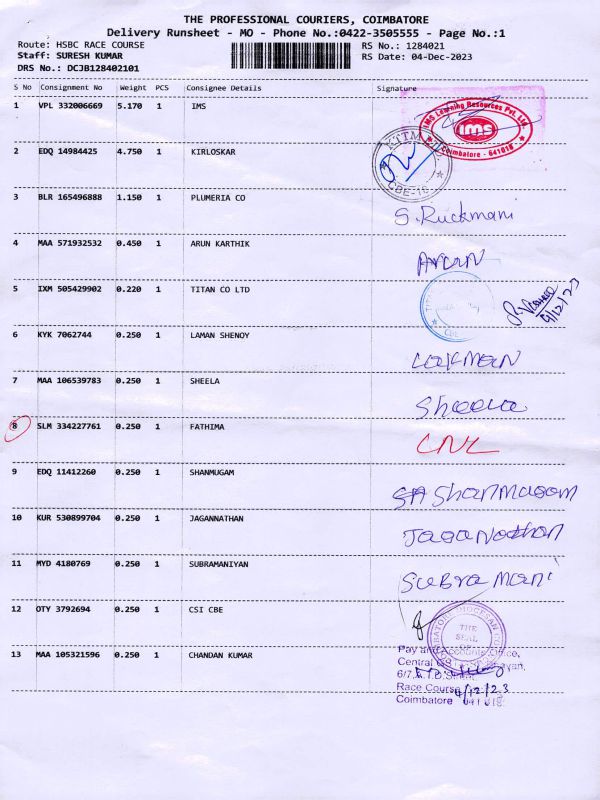 THE PROFESSIONAL COURIERS, COIMBATORE
Delivery Runsheet - MO - Phone No.:0422-3505555 - Page No.:1
Route: HSBC RACE COURSE RS No.: 1284021
Staff: SURESH KUMAR RS Date: 04-Dec-2023
DRS No.: DCJB128402101
S No Consignment No Weight PCS Consignee Details Signature
1 VPL 332006669 5.170 1 IMS
IMS Learning Resources Pvt. Ltd
ims
Coimbatore - 641018
2 EDQ 14984425 4.750 1 KIRLOSKAR
CBE-18
3 BLR 165496888 1.150 1 PLUMERIA CO S. Ruckmani
4 MAA 571932532 0.450 1 ARUN KARTHIK Arun
5 IXM 505429902 0.220 1 TITAN CO LTD
4/12/23
6 KYK 7062744 0.250 1 LAMAN SHENOY
7 MAA 106539783 0.250 1 SHEELA Sheela
8 SLM 334227761 0.250 1 FATHIMA CNL
9 EDQ 11412260 0.250 1 SHANMUGAM
10 KUR 530899704 0.250 1 JAGANNATHAN
11 MYD 4180769 0.250 1 SUBRAMANIYAN Subramani
12 OTY 3792694 0.250 1 CSI CBE
THE
SEAL
OF
13 MAA 105321596 0.250 1 CHANDAN KUMAR
Pay and Accounts Office,
Central
Race Course 4/12/23
Coimbatore 641018